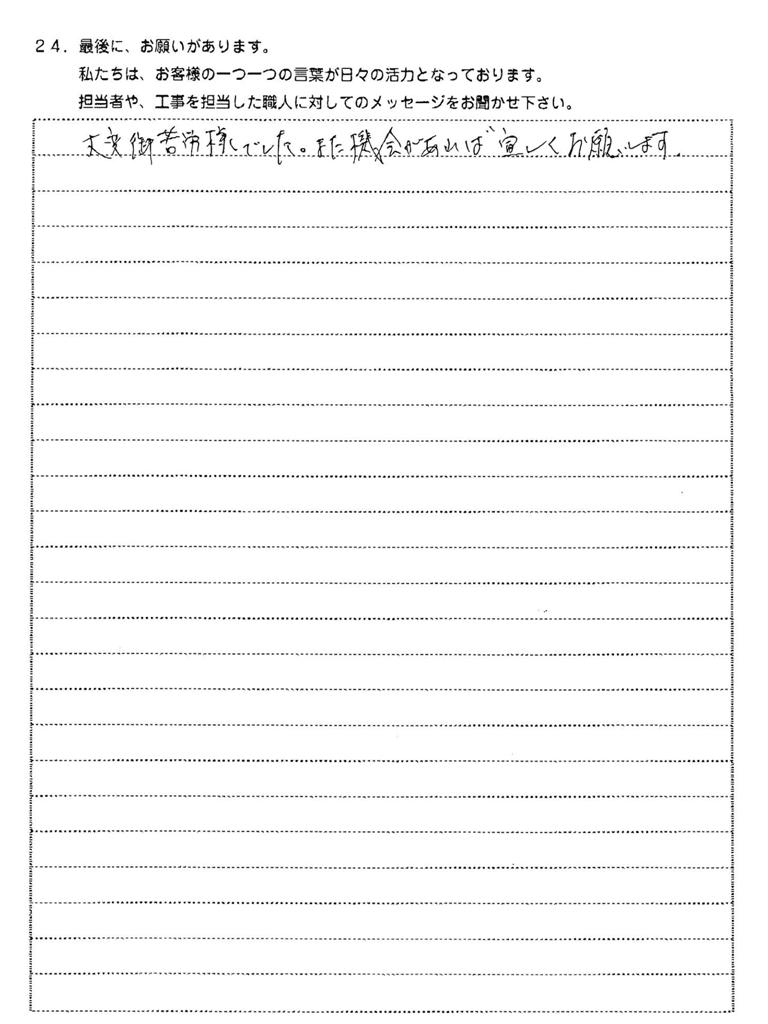 24．最後に、お願いがあります。
私たちは、お客様の一つ一つの言葉が日々の活力となっております。
担当者や、工事を担当した職人に対してのメッセージをお聞かせ下さい。
大変御苦労様でした。また機会があれば宜しくお願いします。